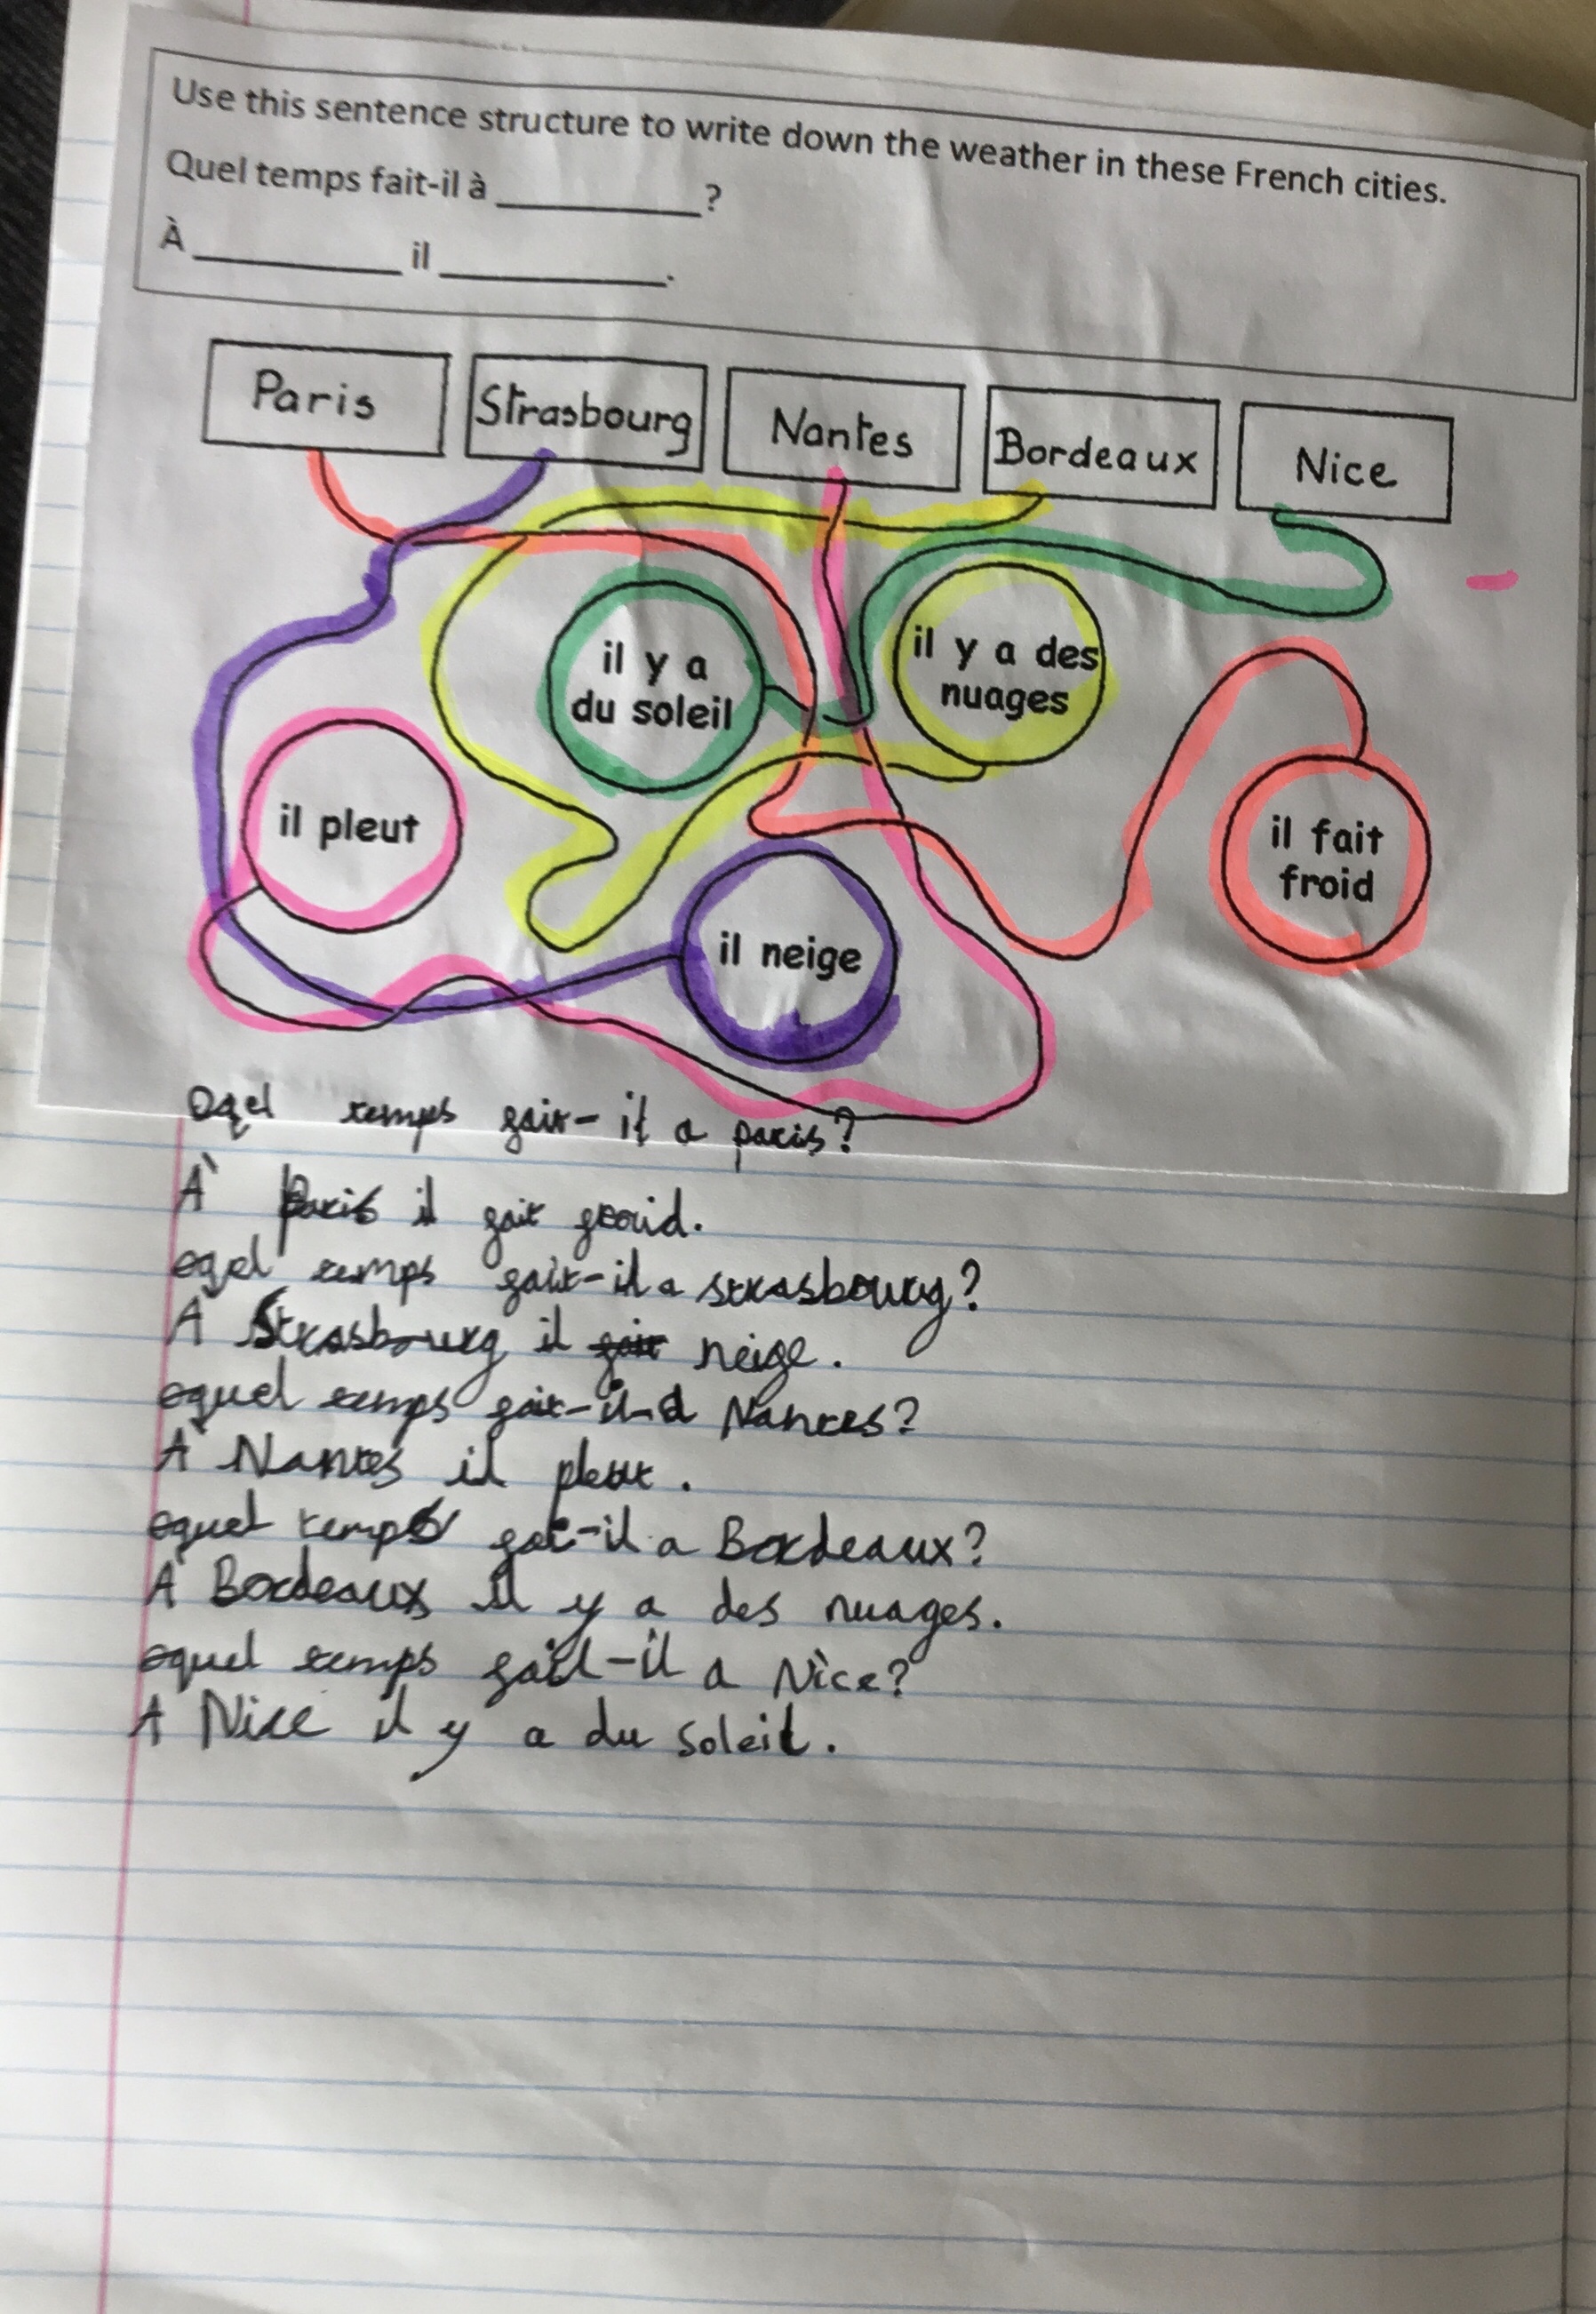 Use this sentence structure to write down the weather in these French cities.
Quel temps fait-il à __________ ?
À __________ il __________.
Paris
Strasbourg
Nantes
Bordeaux
Nice
il y a
du soleil
il y a des
nuages
il pleut
il fait
froid
il neige
Oqel temps fait-il a paris?
À Paris il fait froid.
oqel temps fait-il a strasbourg?
À Strasbourg il fait neige.
oquel temps fait-il-a Nantes?
À Nantes il pleut.
oquel temps fai-il a Bordeaux?
À Bordeaux il y a des nuages.
oquel temps fait-il a Nice?
A Nice il y a du soleil.